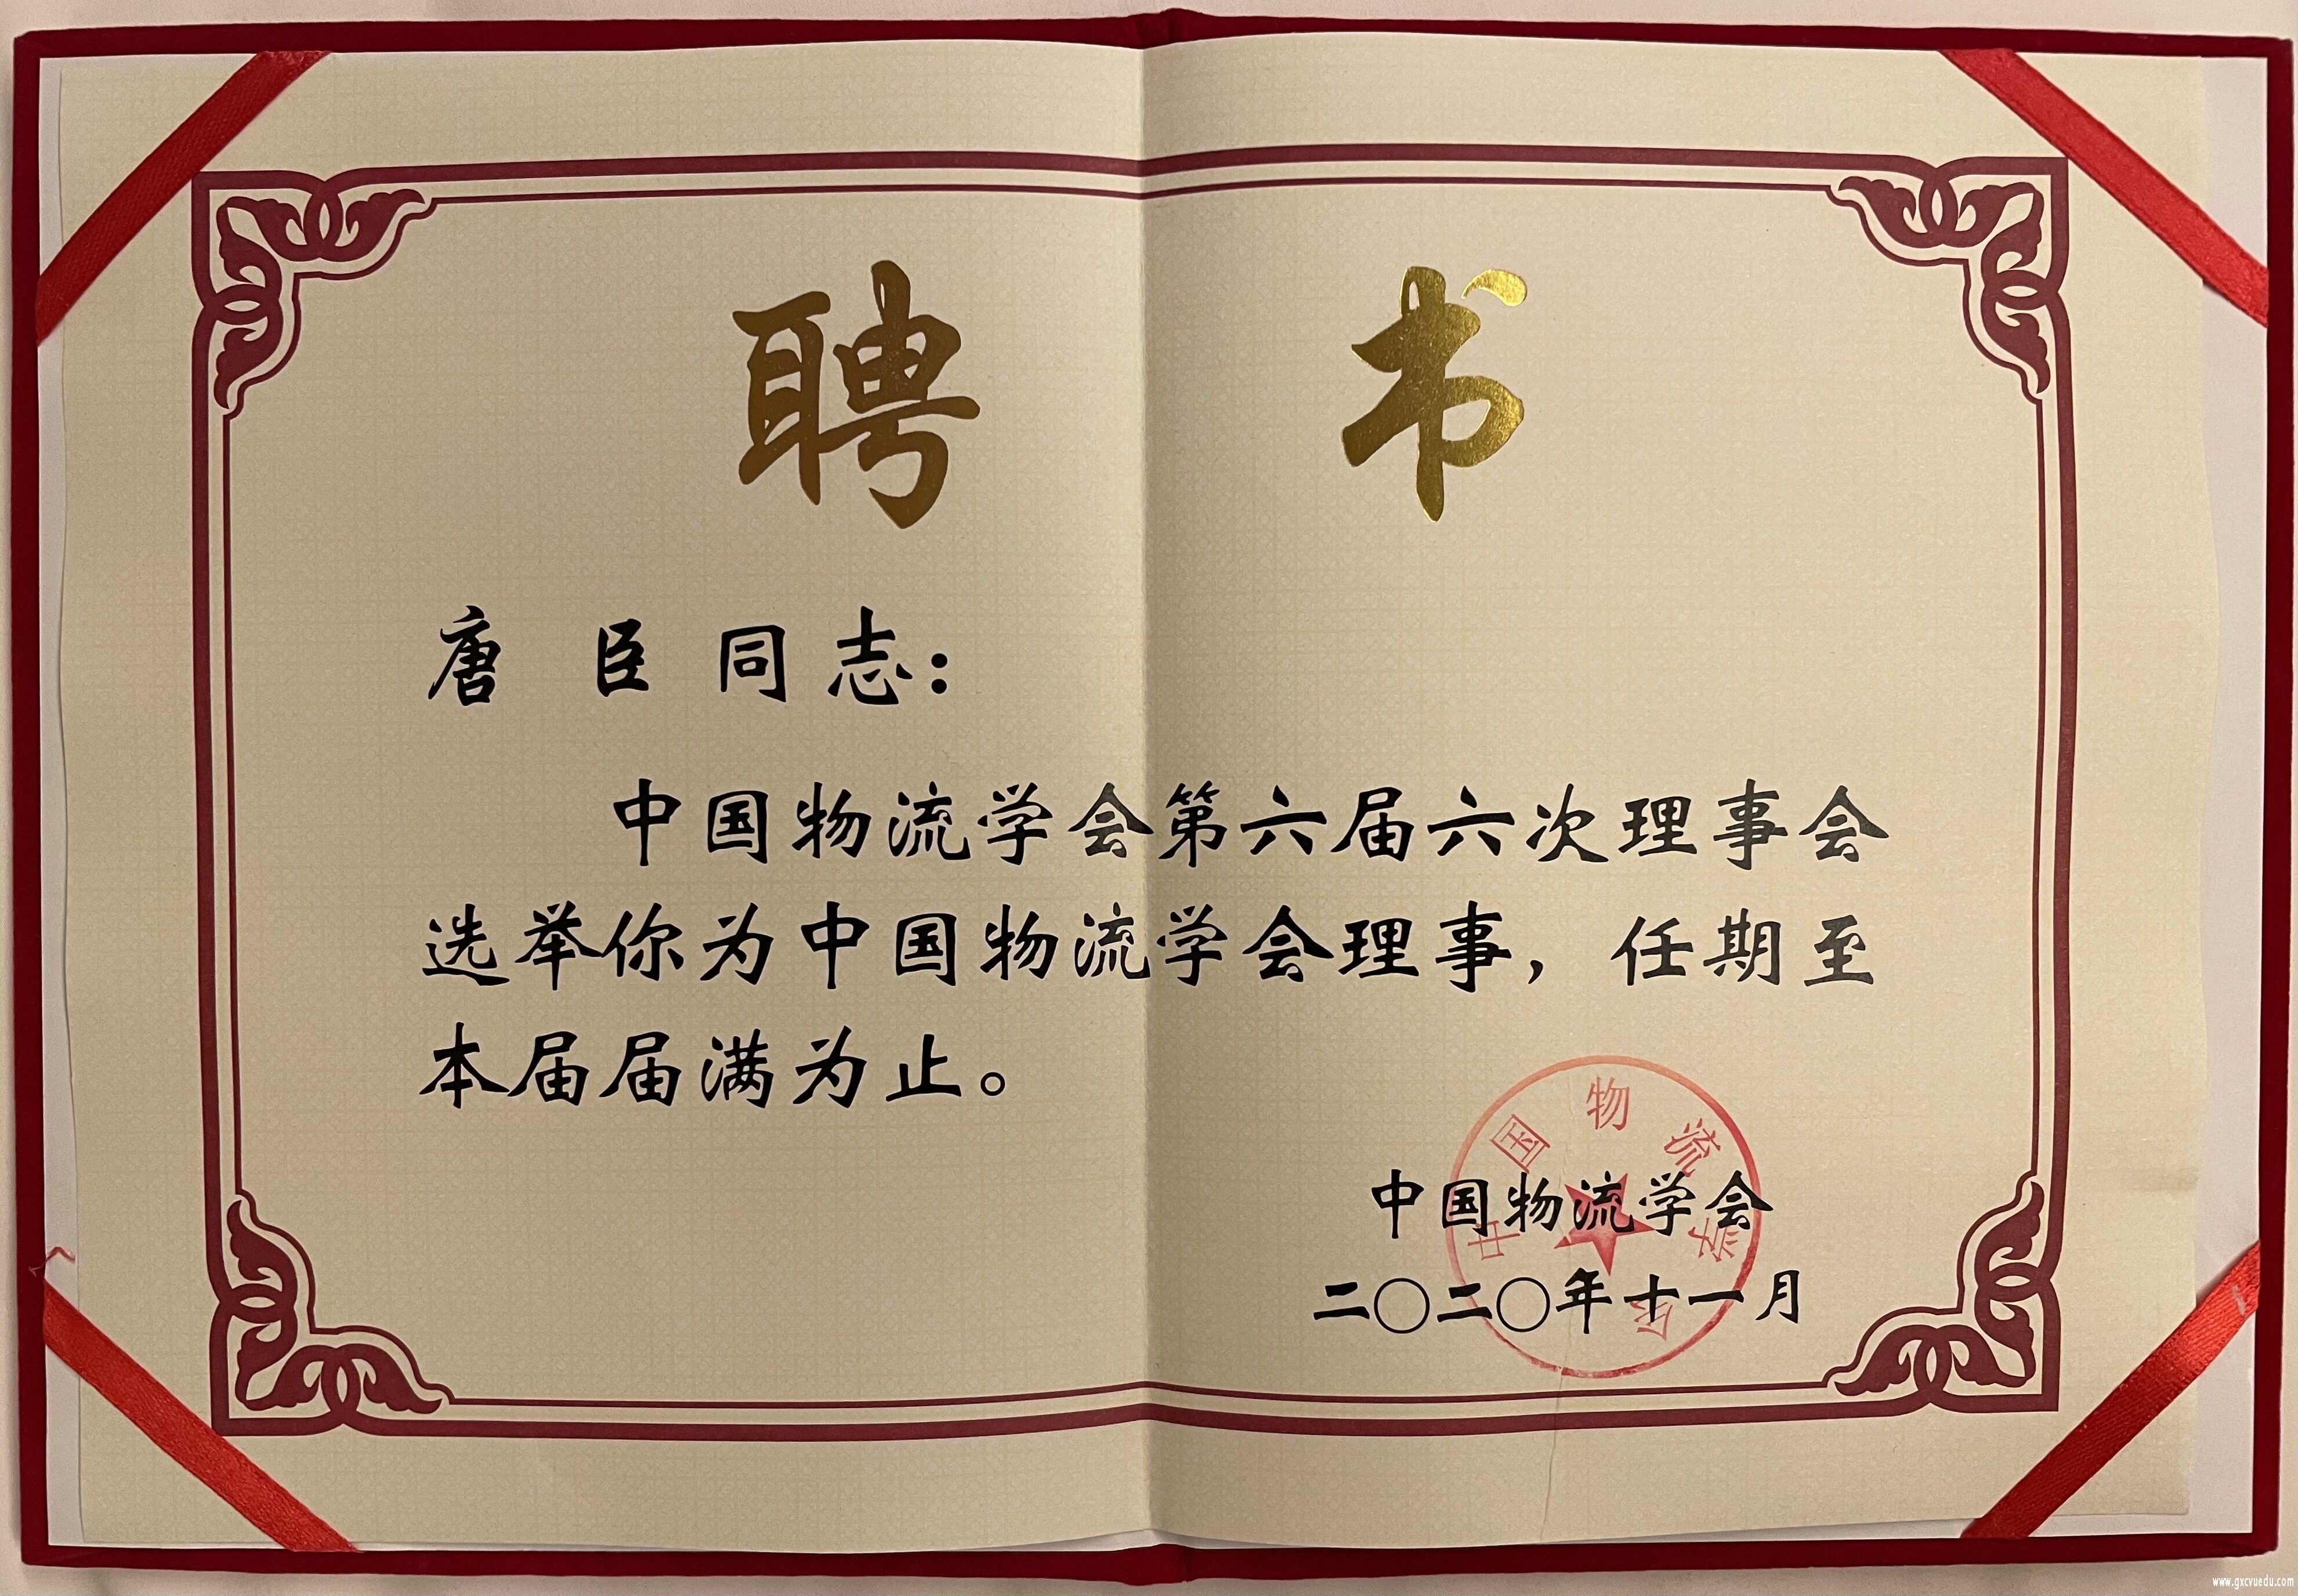 聘 书
唐 臣 同 志：
中国物流学会第六届六次理事会
选举你为中国物流学会理事，任期至
本届届满为止。
中国物流学会
中国物流学会
二〇二〇年十一月
www.gxcvuedu.com